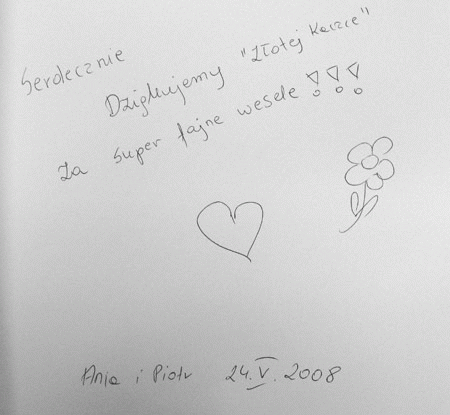 Serdecznie
Dziękujemy "Złotej Kaczce"
Za super fajne wesele !!!
Ania i Piotr 24.V.2008